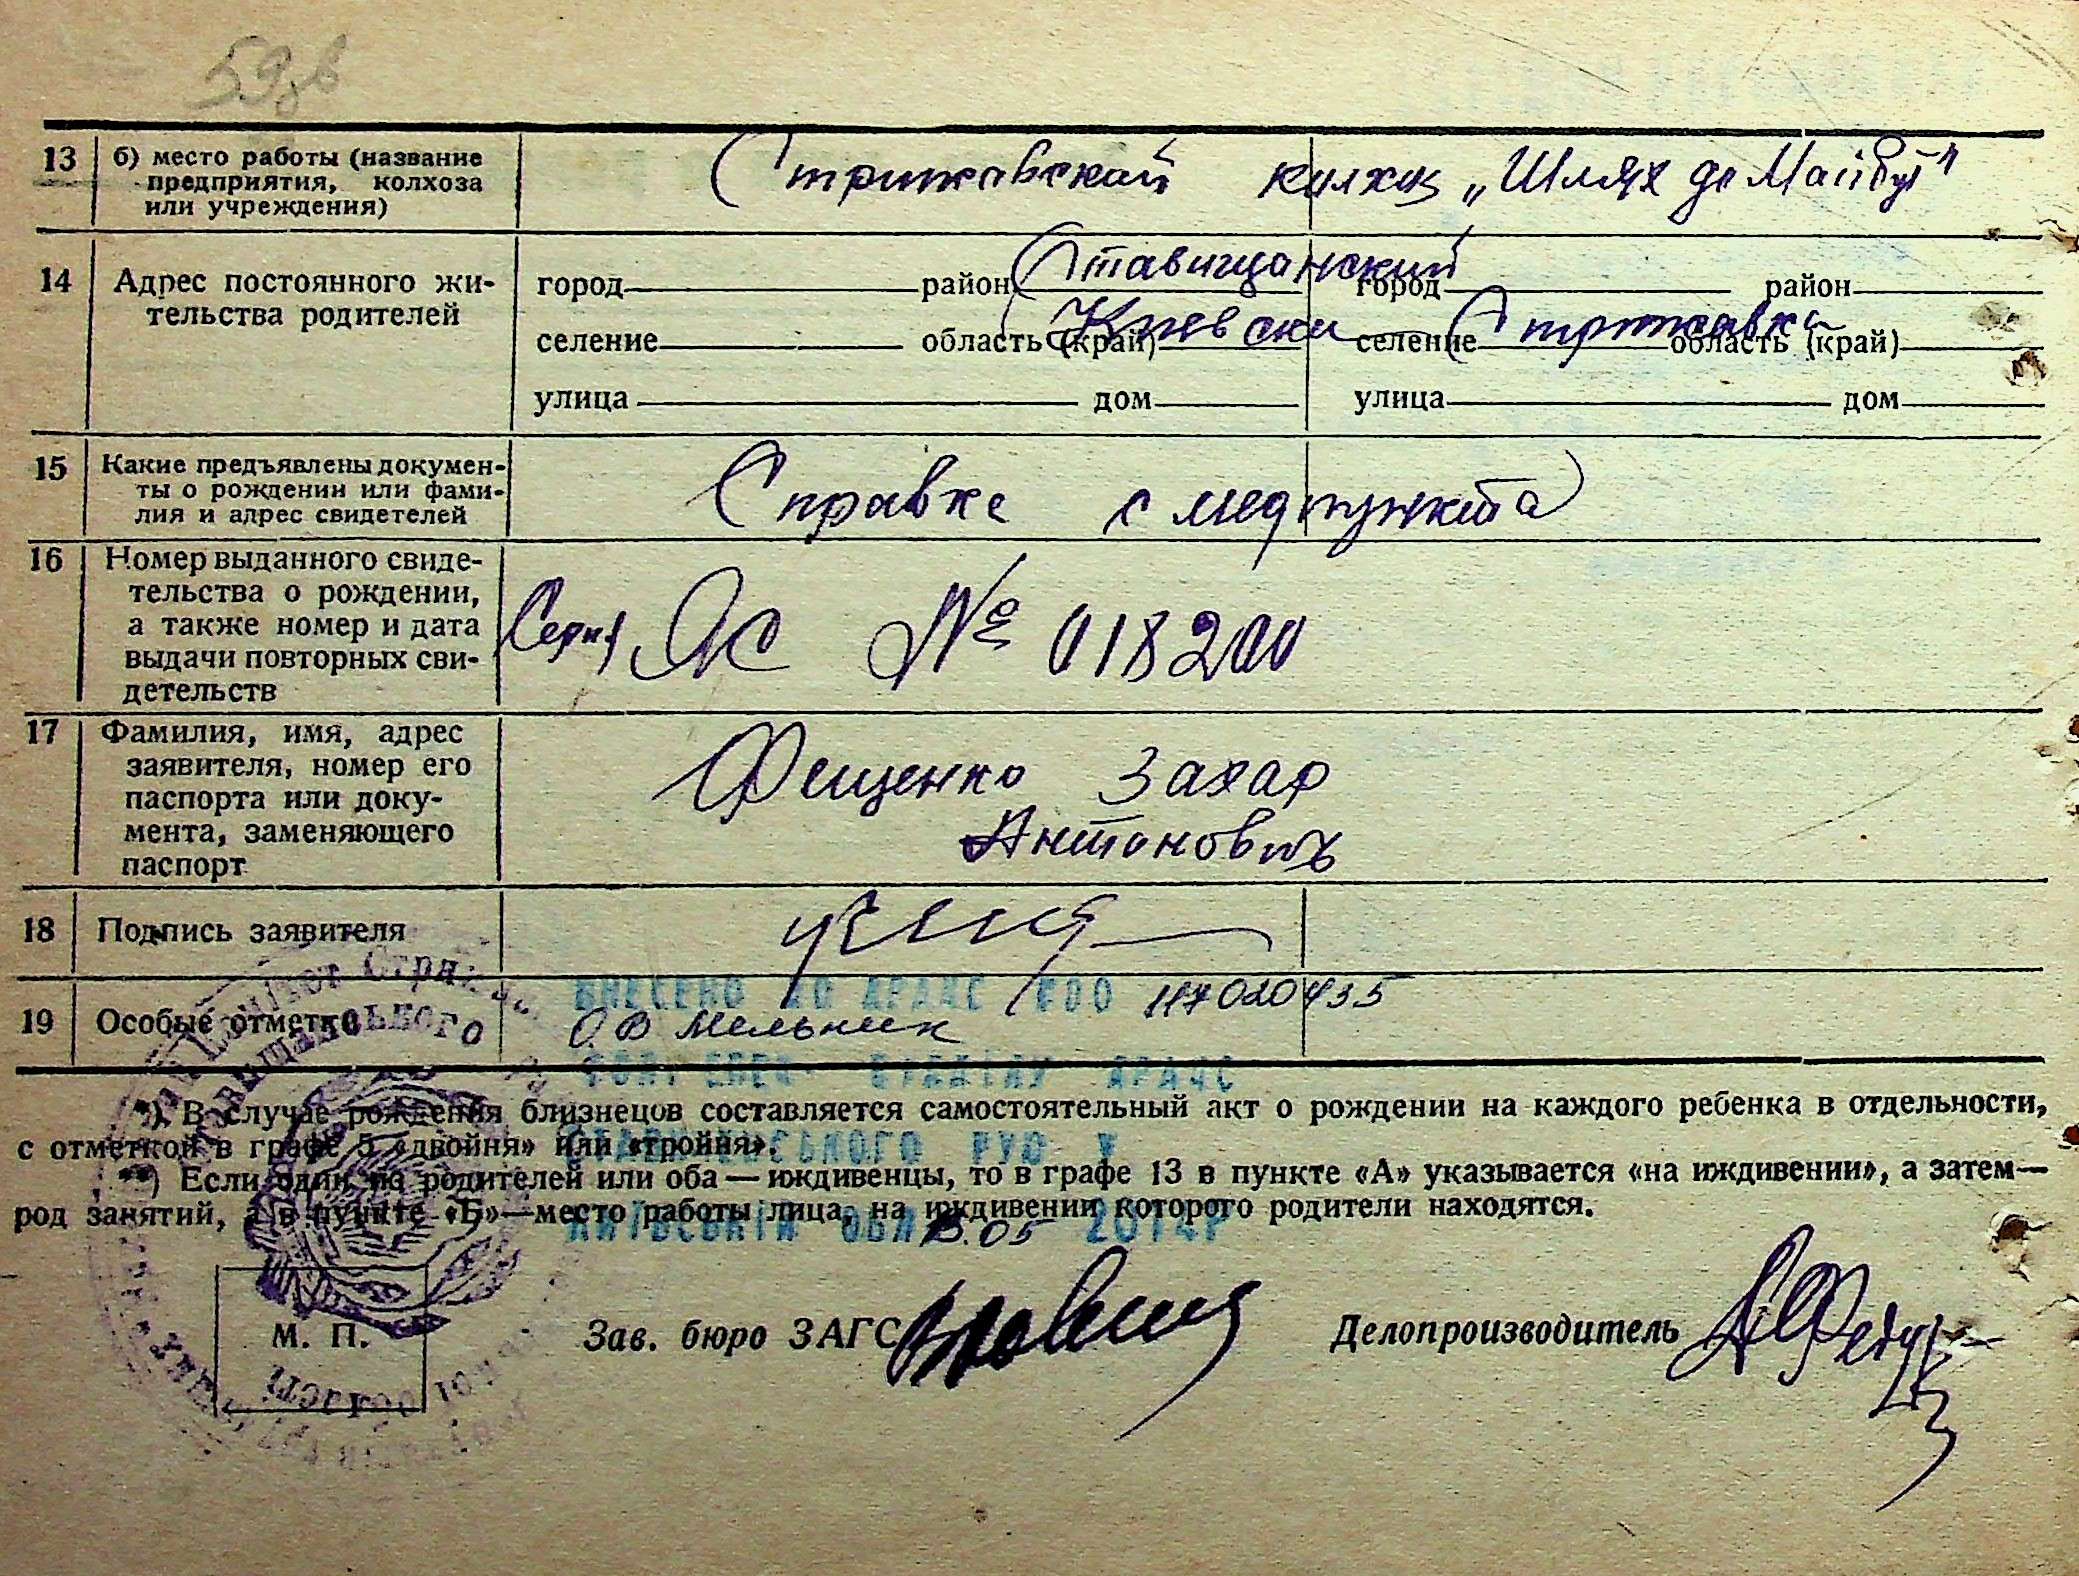 59зв
13 б) место работы (название
предприятия, колхоза
или учреждения)
Стрижавский колхоз „Шлях до Майбут"
14 Адрес постоянного жи-
тельства родителей
город район Ставищанский город район
селение область (край) Киевски селение Стрижавка область (край)
улица дом улица дом
15 Какие предъявлены докумен-
ты о рождении или фами-
лия и адрес свидетелей
Справка с медпункта
16 Номер выданного свиде-
тельства о рождении,
а также номер и дата
выдачи повторных сви-
детельств
Серия ЯС № 018200
17 Фамилия, имя, адрес
заявителя, номер его
паспорта или доку-
мента, заменяющего
паспорт
Фещенко Захар
Антонович
18 Подпись заявителя
19 Особые отметки
ВНЕСЕНО ДО ДРАЦС 00 117020435
О.В Мельник
ВІДДІЛУ ДРАЦС
СТАВИЩЕНСЬКОГО РУЮ У
КИЇВСЬКІЙ ОБЛ 13.05 2014Р
*) В случае рождения близнецов составляется самостоятельный акт о рождении на каждого ребенка в отдельности,
с отметкой в графе 5 «двойня» или «тройня».
**) Если один из родителей или оба — иждивенцы, то в графе 13 в пункте «А» указывается «на иждивении», а затем—
род занятий, а в пункте «Б»—место работы лица, на иждивении которого родители находятся.
М. П.
Зав. бюро ЗАГС
Делопроизводитель